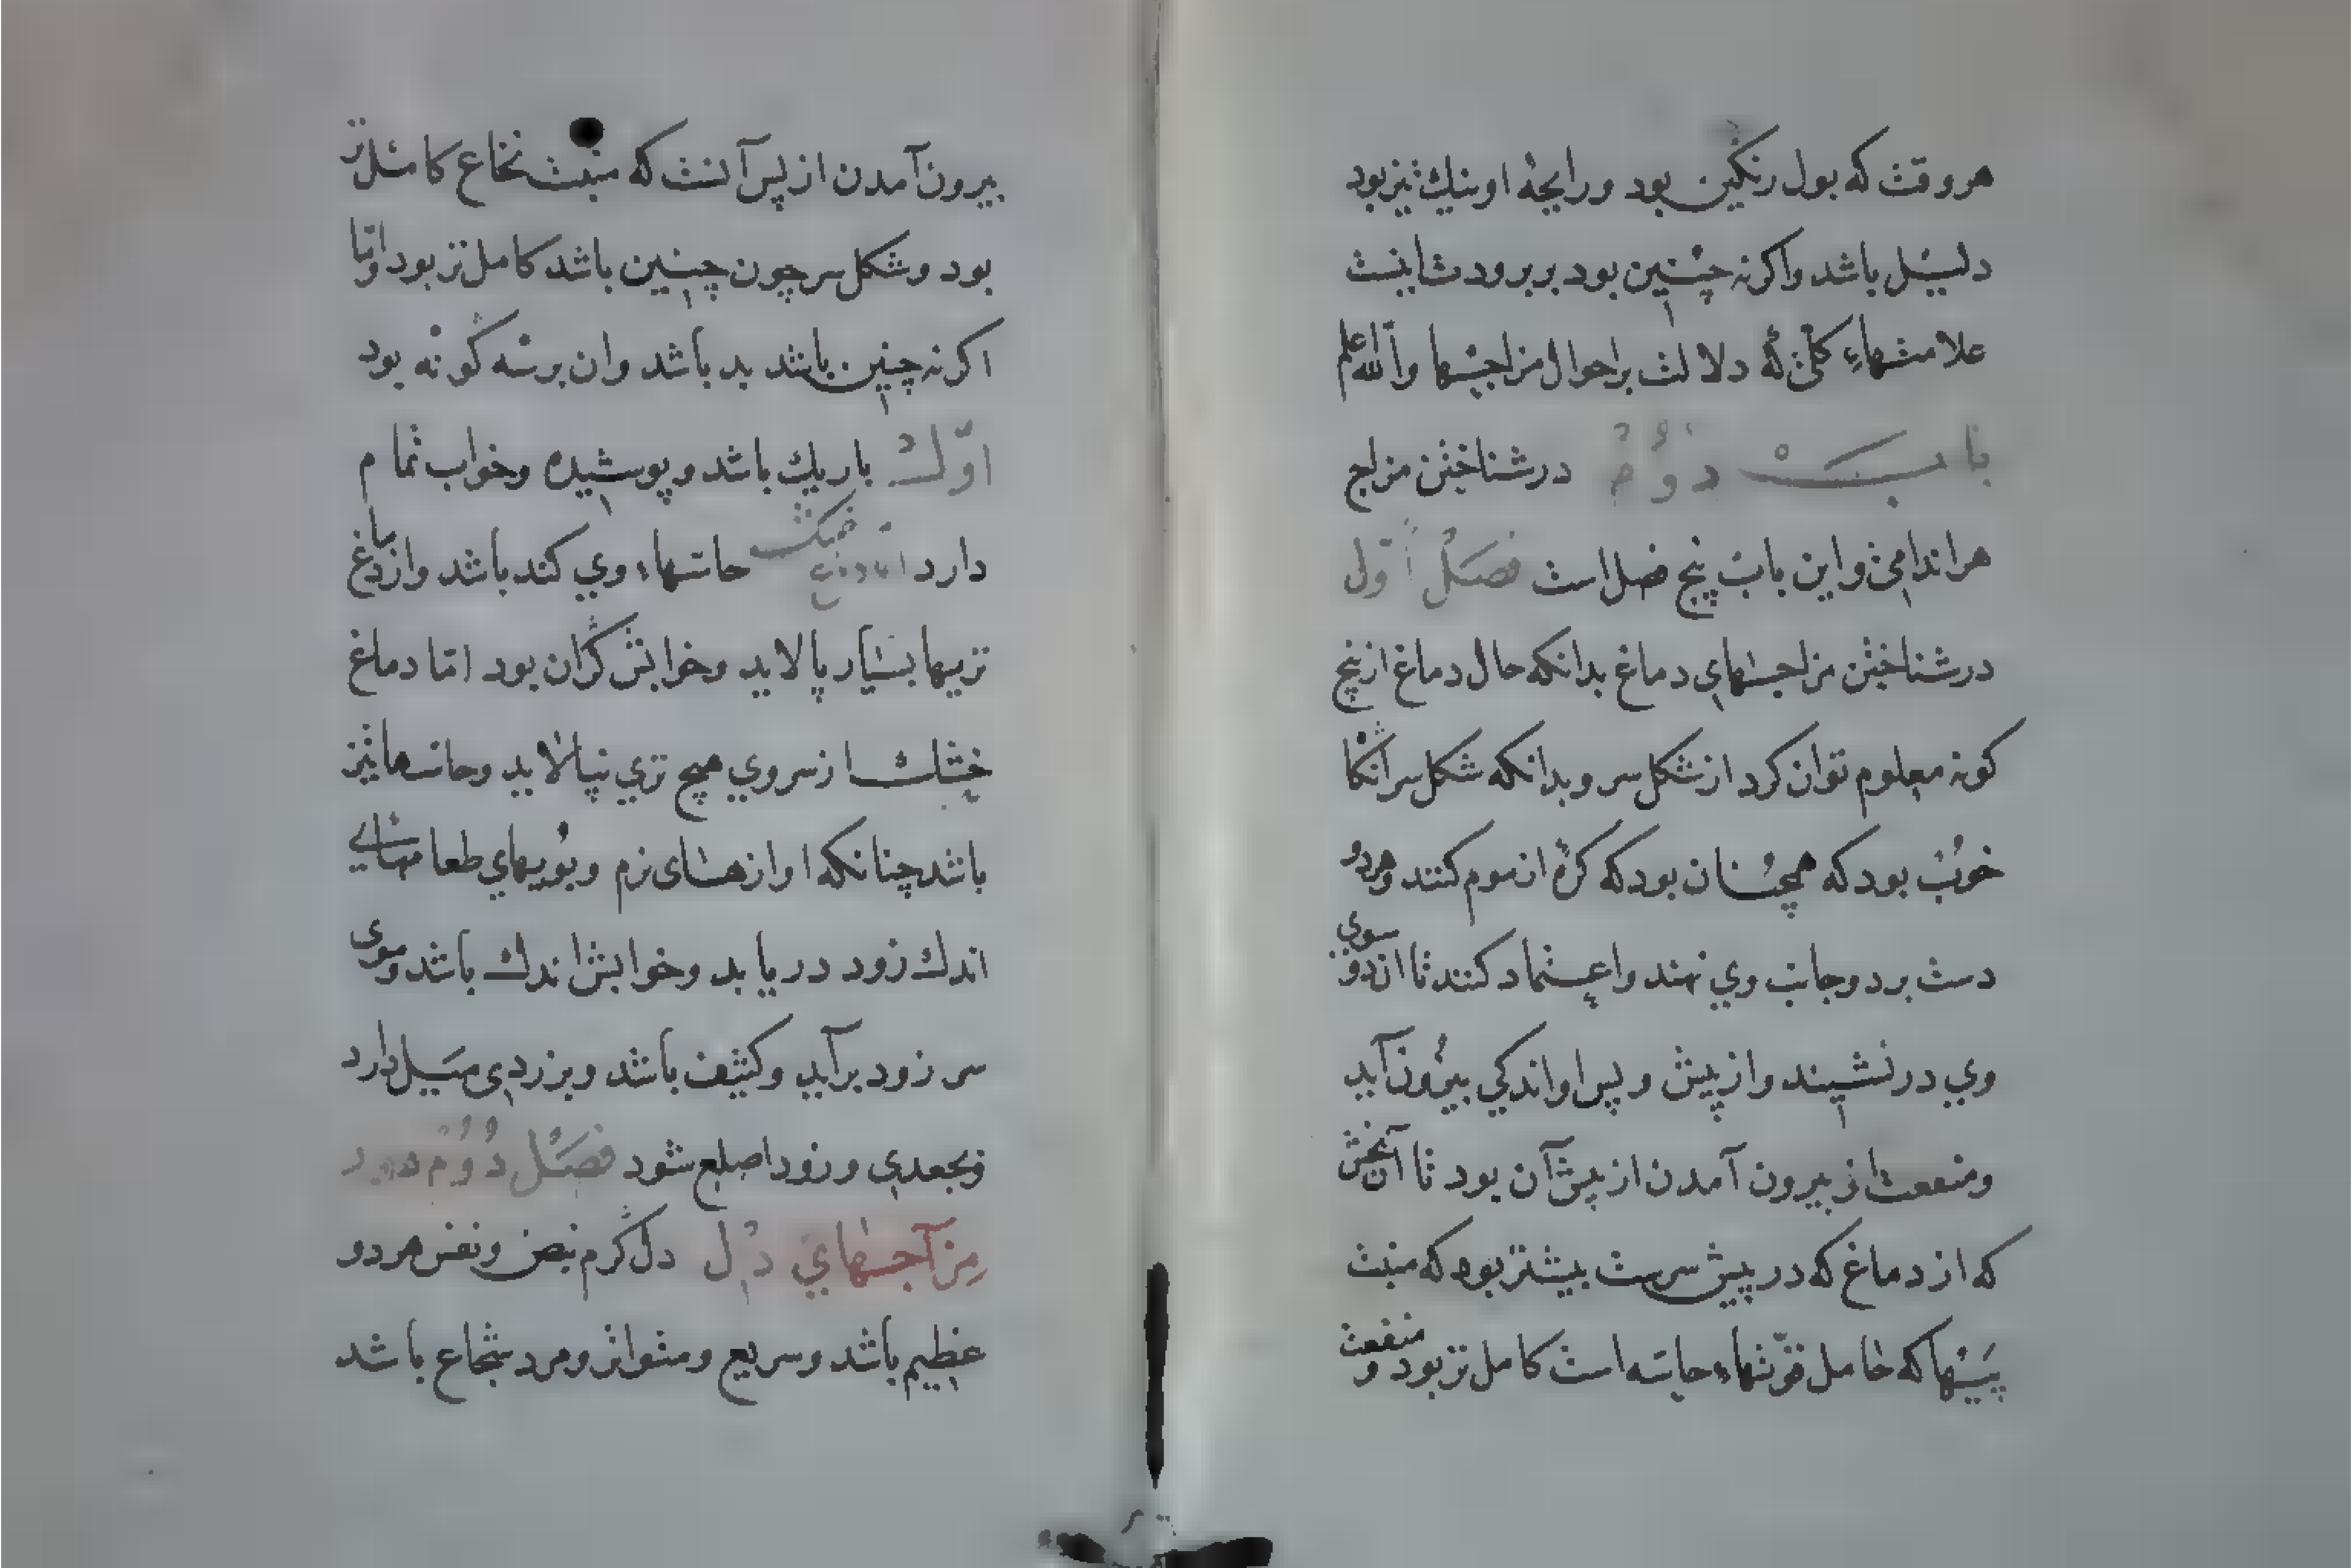 هر وقت که بول رنگین بود و رایحهٔ او نیك تیز بود
دلیل باشد و اگر نه چنین بود بر برودت اینست
علامتهاء کلی که دلالت بر احوال مزاجها والله اعلم
باب دوم در شناختن مزاج
هر اندامی و این باب پنج فصل است فصل اول
در شناختن مزاجهای دماغ بدانکه حال دماغ از پنج
کونه معلوم توان کرد از شکل سر و بدانکه شکل سر آنگا
خوب بود که همچنان بود که کره از موم کنند و هر دو
دست بر دو جانب وي نهند و اعتماد کنند تا از دو سوي
وي در نشیند و از پیش و پس او اندکي بیرون آید
و منفعت از بیرون آمدن از پیش آن بود تا آن بخش
که از دماغ که در پیش سرست بیشتر بود که منبت
پیها که حامل قوتهاء حاسه است کامل تر بود و منفعت
بیرون آمدن از پس آنست که منبت نخاع کامل تر
بود و شکل سر چون چنین باشد کامل تر بود و اما
اگر نه چنین باشد بد باشد و ان بر سه گونه بود
اول باریك باشد و پوشیده و خواب تمام
دارد حاستهاء وي کند باشد و از دماغ
تریها بسیار پالاید و خوابش گران بود اما دماغ
خشك از سر وي هیچ تري نپالاید و حاستها تیز
باشد چنانکه اوازهای نرم و بویهاي طعامهاي
اندك زود دریابد و خوابش اندك باشد و موی
سر زود برآید و کثیف باشد و بزردی میل دارد
و بجعدي و زود اصلع شود فصل دوم در
مزاجهاي دل دل گرم نبض و نفس هر دو
عظیم باشد و سریع و متواتر و مرد شجاع باشد